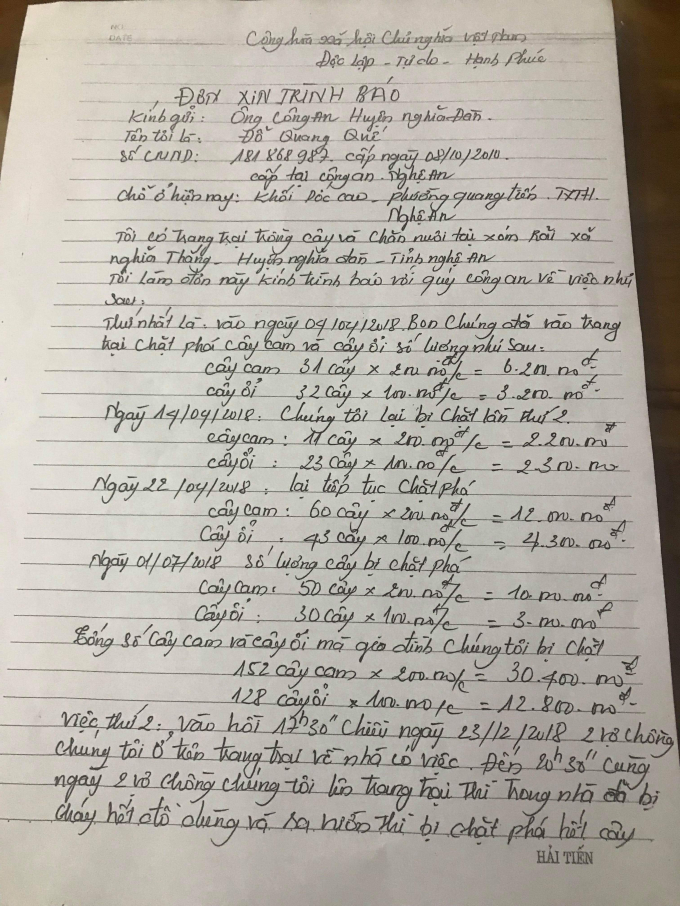 Cộng hòa xã hội Chủ nghĩa Việt Nam
Độc lập - Tự do - Hạnh Phúc
ĐƠN XIN TRÌNH BÁO
Kính gửi: Ông Công An Huyện nghĩa Đàn.
Tên tôi là: Đỗ Quang Quế
Số CMND: 181868987. cấp ngày 08/10/2010.
cấp tại công an. Nghệ An
Chỗ ở hiện nay: Khối Dốc cao - phường quang tiến. TXTH.
Nghệ An
Tôi có trang trại trồng cây và chăn nuôi tại xóm xã
nghĩa Thắng - Huyện nghĩa đàn - Tỉnh nghệ An
Tôi làm đơn này kính trình báo với quý công an về việc như
sau:
Thứ nhất là: vào ngày 04/04/2018. Bọn chúng đã vào trang
trại chặt phá cây cam và cây ổi số lượng như sau:
cây cam 31 cây x 200.000đ/c = 6.200.000đ
cây ổi 32 cây x 100.000đ/c = 3.200.000đ
Ngày 14/04/2018: Chúng tôi lại bị chặt lần thứ 2.
cây cam: 11 cây x 200.000đ/c = 2.200.000đ
cây ổi: 23 cây x 100.000đ/c = 2.300.000
Ngày 22/04/2018: lại tiếp tục chặt phá
cây cam: 60 cây x 200.000đ/c = 12.000.000đ
Cây ổi: 43 cây x 100.000đ/c = 4.300.000đ
Ngày 01/07/2018 số lượng cây bị chặt phá
Cây cam: 50 cây x 200.000đ/c = 10.000.000đ
Cây ổi: 30 cây x 100.000đ/c = 3.000.000đ
Tổng số cây cam và cây ổi mà gia đình chúng tôi bị chặt
152 cây cam x 200.000/c = 30.400.000đ
128 cây ổi x 100.000/c = 12.800.000đ
Việc thứ 2: vào hồi 17h30'' chiều ngày 23/12/2018 2 vợ chồng
chúng tôi ở trên trang trại về nhà có việc. Đến 20h30'' cùng
ngày 2 vợ chồng chúng tôi lên trang trại thì trong nhà đã bị
cháy hết đồ dùng và ra vườn thì bị chặt phá hết cây
HẢI TIẾN